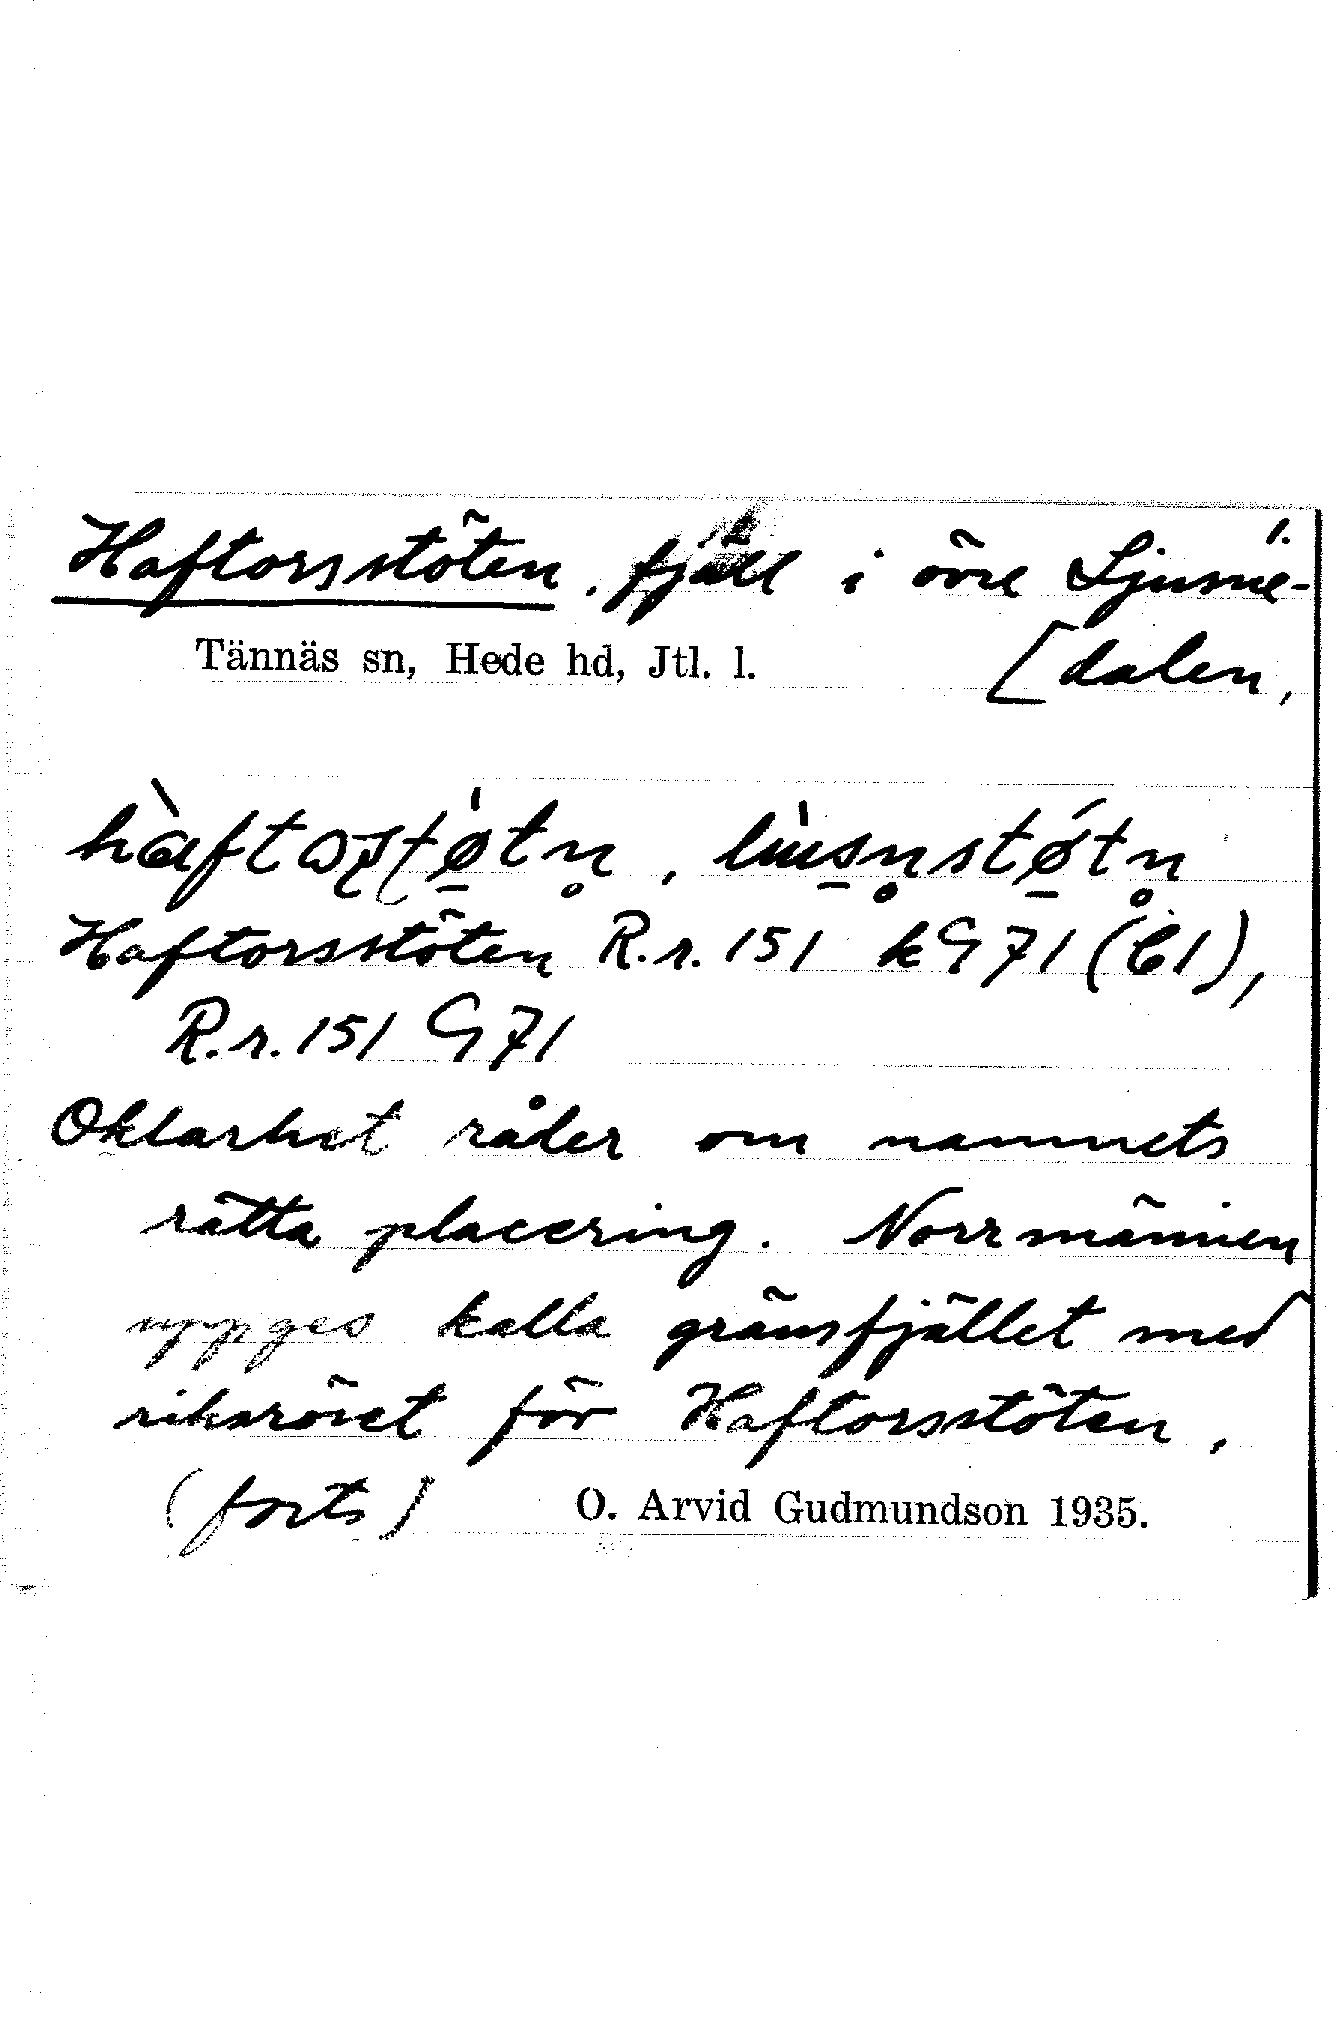 1.
Haftorsstöten, fjäll i övre Ljusne-
Tännäs sn, Hede hd, Jtl. l. [dalen,
Haftorsstöten R.r. 151 k G 71 (C1),
R.r. 151 G 71
Oklarhet råder om namnets
rätta placering. Norrmännen
uppges kalla gränsfjället med
riksröset för Haftorsstöten,
(forts) O. Arvid Gudmundson 1935.